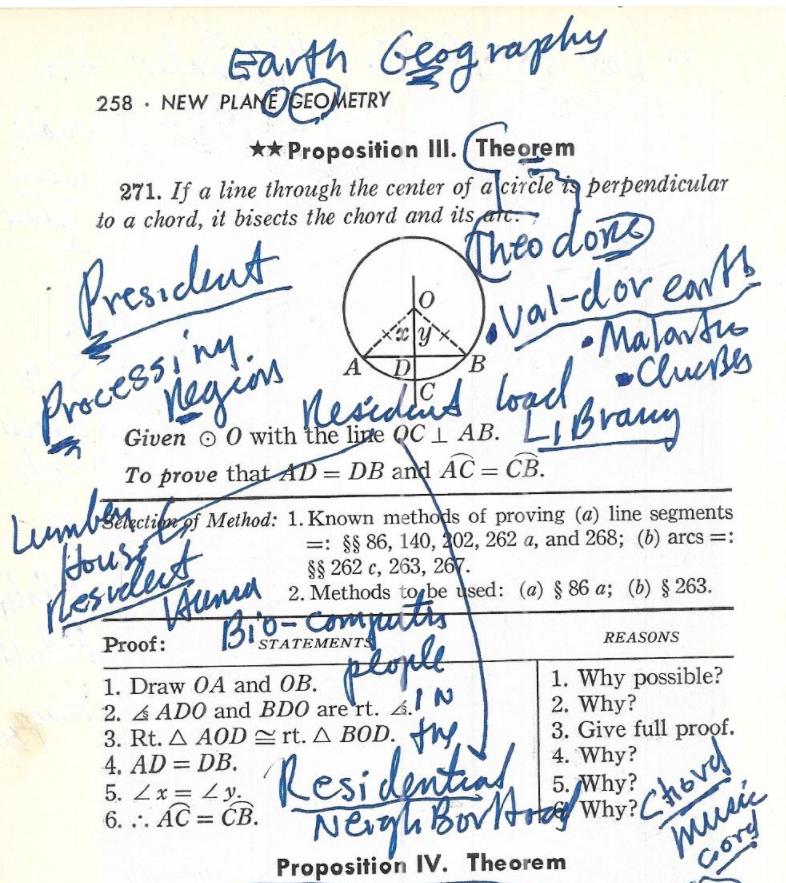 Earth Geography
258 · NEW PLANE GEOMETRY
★★Proposition III. Theorem
271. If a line through the center of a circle is perpendicular
to a chord, it bisects the chord and its arc.
Theodore
President
O
Val-dor earth
x y
• Malartic
Processing
A D B
Region
C
Resident load
Library
Given ⊙ O with the line OC ⊥ AB.
To prove that AD = DB and A͡C = C͡B.
Lumber
Selection of Method: 1. Known methods of proving (a) line segments
=: §§ 86, 140, 202, 262 a, and 268; (b) arcs =:
House
§§ 262 c, 263, 267.
Resident
2. Methods to be used: (a) § 86 a; (b) § 263.
Bio-computers
Proof: STATEMENTS REASONS
people
1. Draw OA and OB. 1. Why possible?
IN
2. ∡ ADO and BDO are rt. ∡. 2. Why?
the
3. Rt. △ AOD ≅ rt. △ BOD. 3. Give full proof.
4. AD = DB. 4. Why?
Residential
5. ∠x = ∠y. 5. Why?
NeighBorHood
6. ∴ A͡C = C͡B. 6. Why?
Chord
music
cord
Proposition IV. Theorem